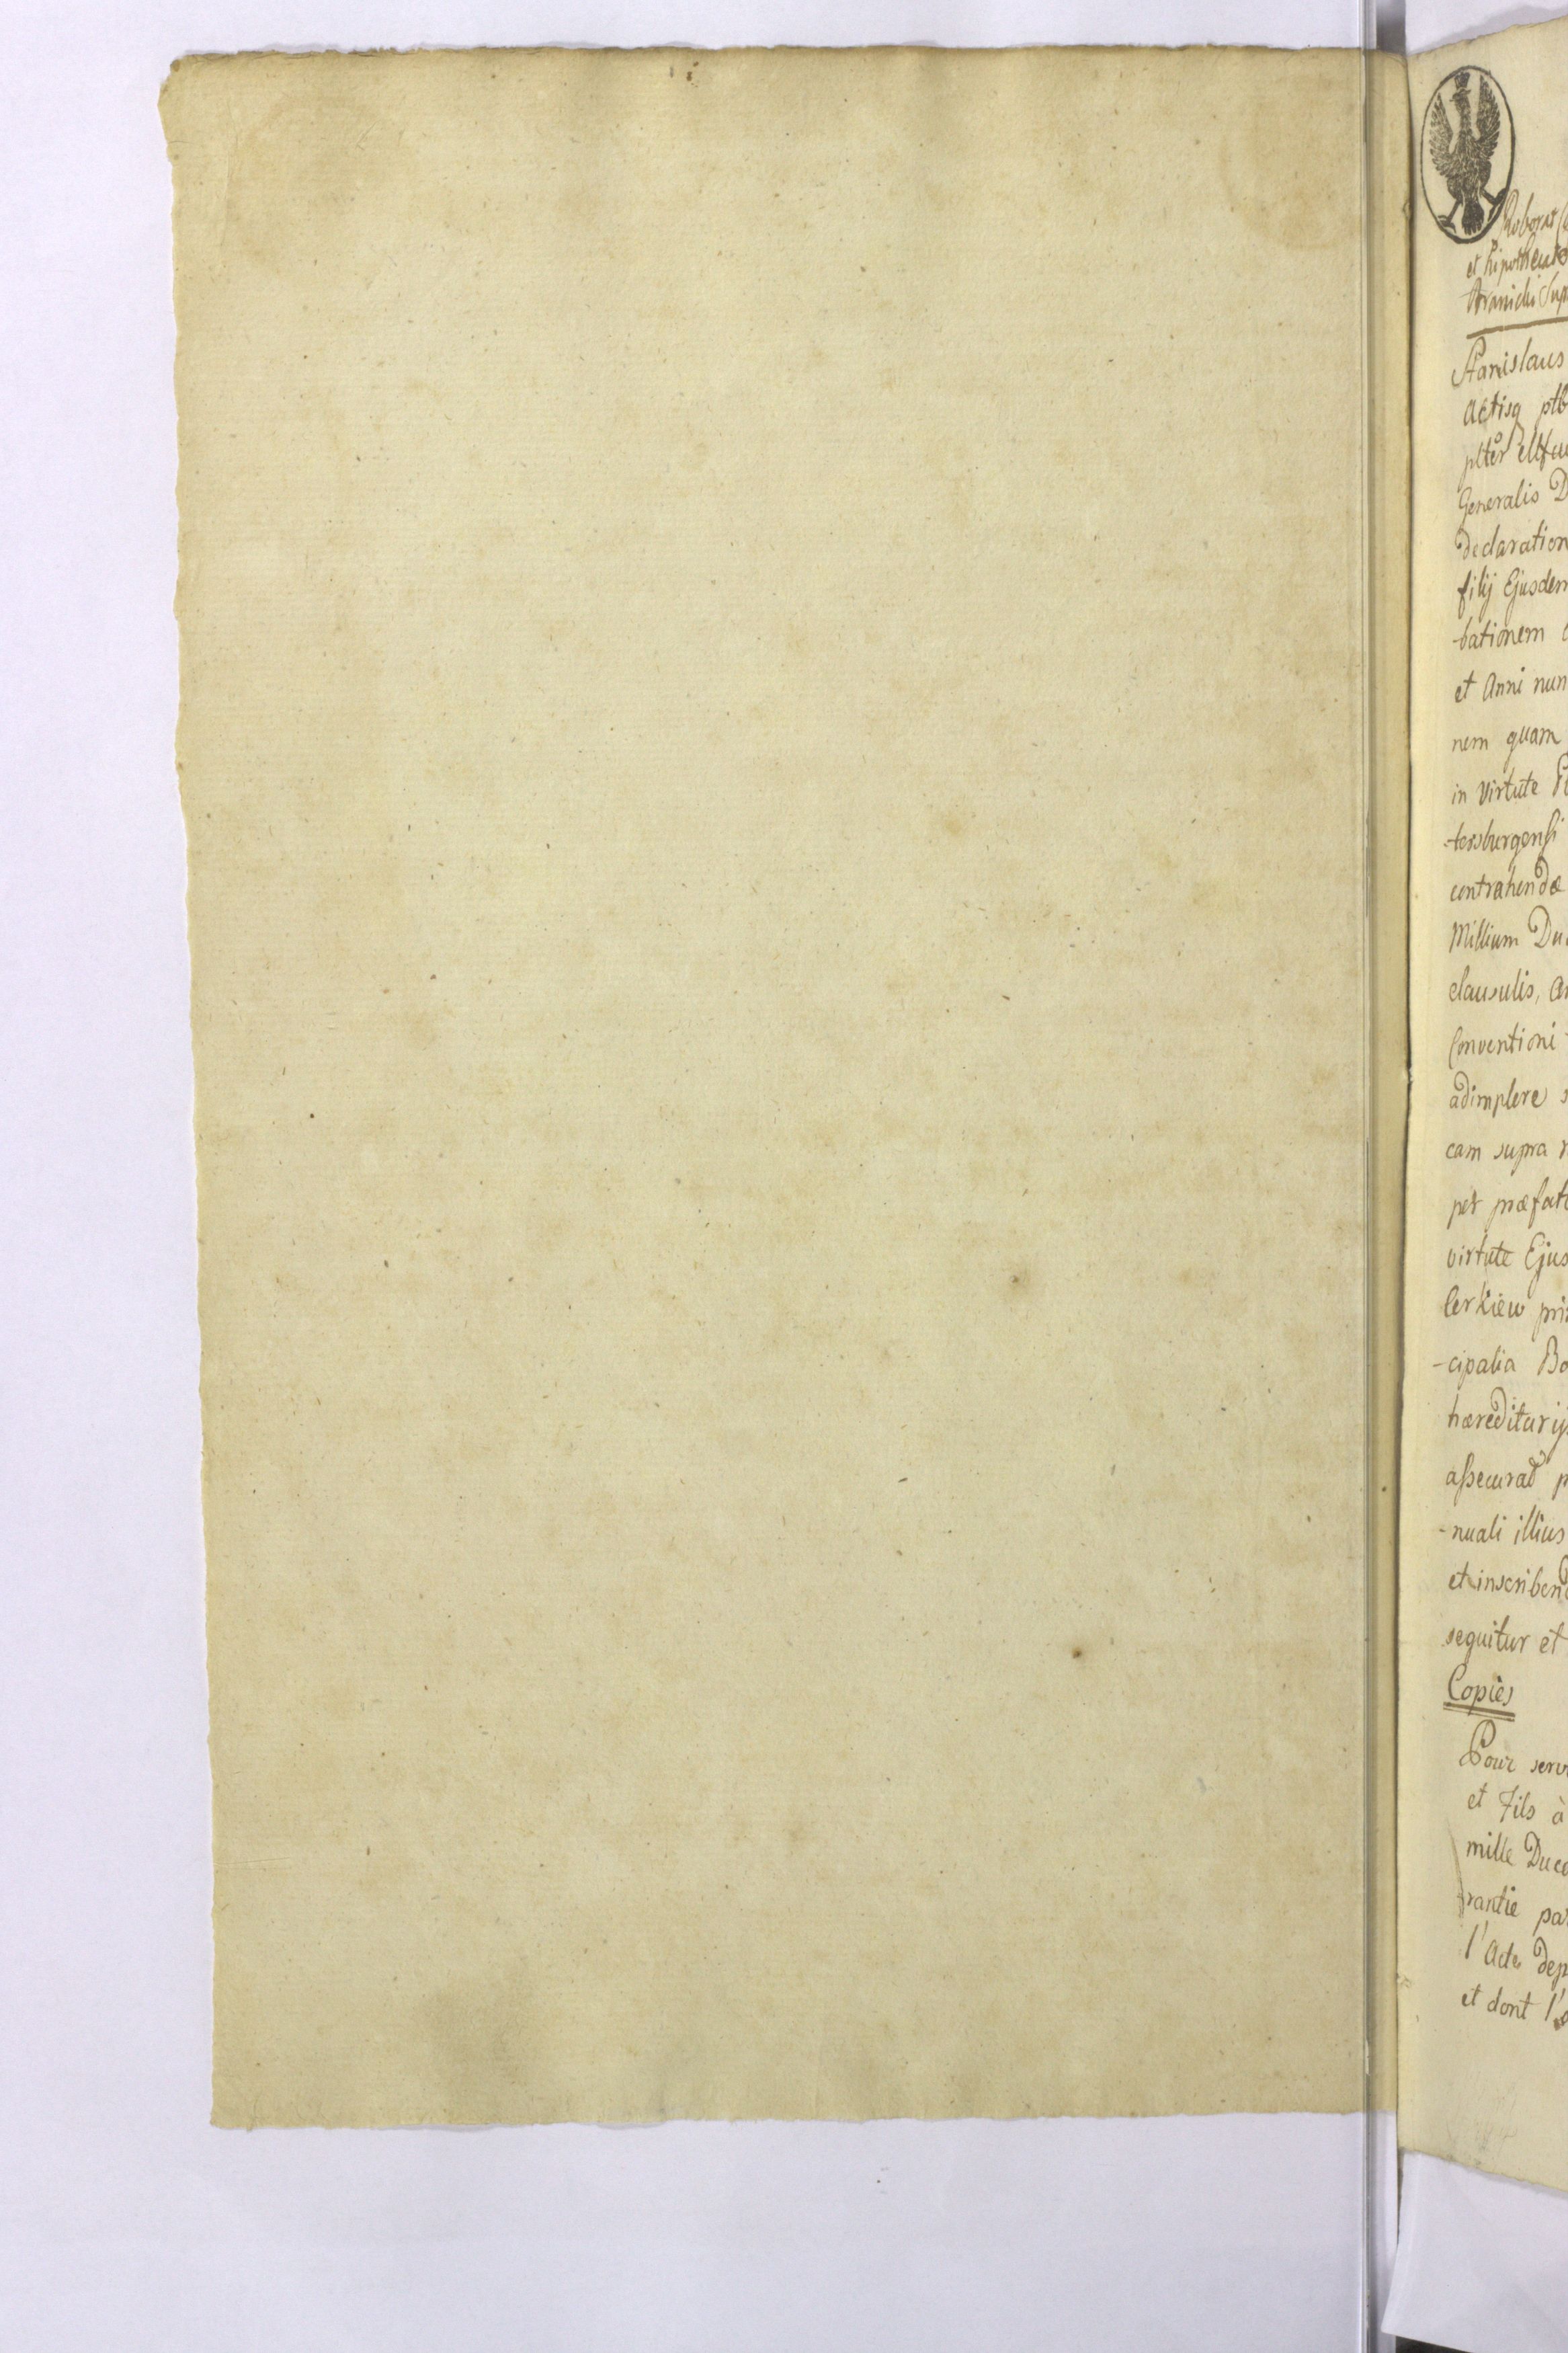 et
Stanislaus
Actisq ptb
plter
Generalis D
declaration
filij Ejusdem
-bationem
et Anni nun
nem quam
in virtute
-tersburgensi
contrahendæ
Millium Du
clausulis, a
Conventioni
adimplere s
cam supra n
per præfat
virtute Ejus
Cerkiew pri
-cipalia Bo
hæreditarijs
assecurad p
-nuali illius
et inscribend
sequitur et
Copies
Pour serv
et Fils à
mille Duca
rantie par
l'Acte dep
et dont l'